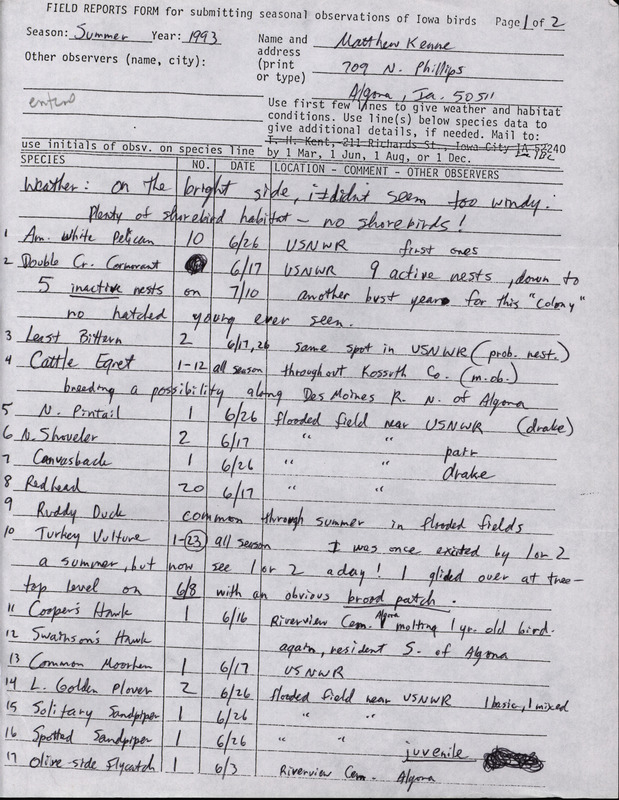 FIELD REPORTS FORM for submitting seasonal observations of Iowa birds Page 1 of 2
Season: Summer Year: 1993 Name and address (print or type) Matthew Kenne
709 N. Phillips
Algona, Ia. 50511
Other observers (name, city):
entered
Use first few lines to give weather and habitat
conditions. Use line(s) below species data to
give additional details, if needed. Mail to:
T. H. Kent, 211 Richards St., Iowa City IA 52240
use initials of obsv. on species line by 1 Mar, 1 Jun, 1 Aug, or 1 Dec.
SPECIES NO. DATE LOCATION - COMMENT - OTHER OBSERVERS
Weather: on the bright side, it didn't seem too windy.
Plenty of shorebird habitat - no shorebirds!
1 Am. White Pelican 10 6/26 USNWR first ones
2 Double Cr. Cormorant 6/17 USNWR 9 active nests, down to
5 inactive nests on 7/10 another bust year for this "colony"
no hatched young ever seen.
3 Least Bittern 2 6/17,26 same spot in USNWR (prob. nest.)
4 Cattle Egret 1-12 all season throughout Kossuth Co. (m.ob.)
breeding a possibility along Des Moines R. N. of Algona
5 N. Pintail 1 6/26 flooded field near USNWR (drake)
6 N. Shoveler 2 6/17 " " pair
7 Canvasback 1 6/26 " " drake
8 Redhead 20 6/17 " "
9 Ruddy Duck common through summer in flooded fields
10 Turkey Vulture 1-23 all season I was once excited by 1 or 2
a summer, but now see 1 or 2 a day! 1 glided over at tree-
top level on 6/8 with an obvious brood patch.
11 Cooper's Hawk 1 6/16 Riverview Cem. Algona molting 1 yr. old bird.
12 Swainson's Hawk again, resident S. of Algona
13 Common Moorhen 1 6/17 USNWR
14 L. Golden Plover 2 6/26 flooded field near USNWR 1 basic, 1 mixed
15 Solitary Sandpiper 1 6/26 " "
16 Spotted Sandpiper 1 6/26 " " juvenile
17 Olive-side Flycatch 1 6/3 Riverview Cem. Algona